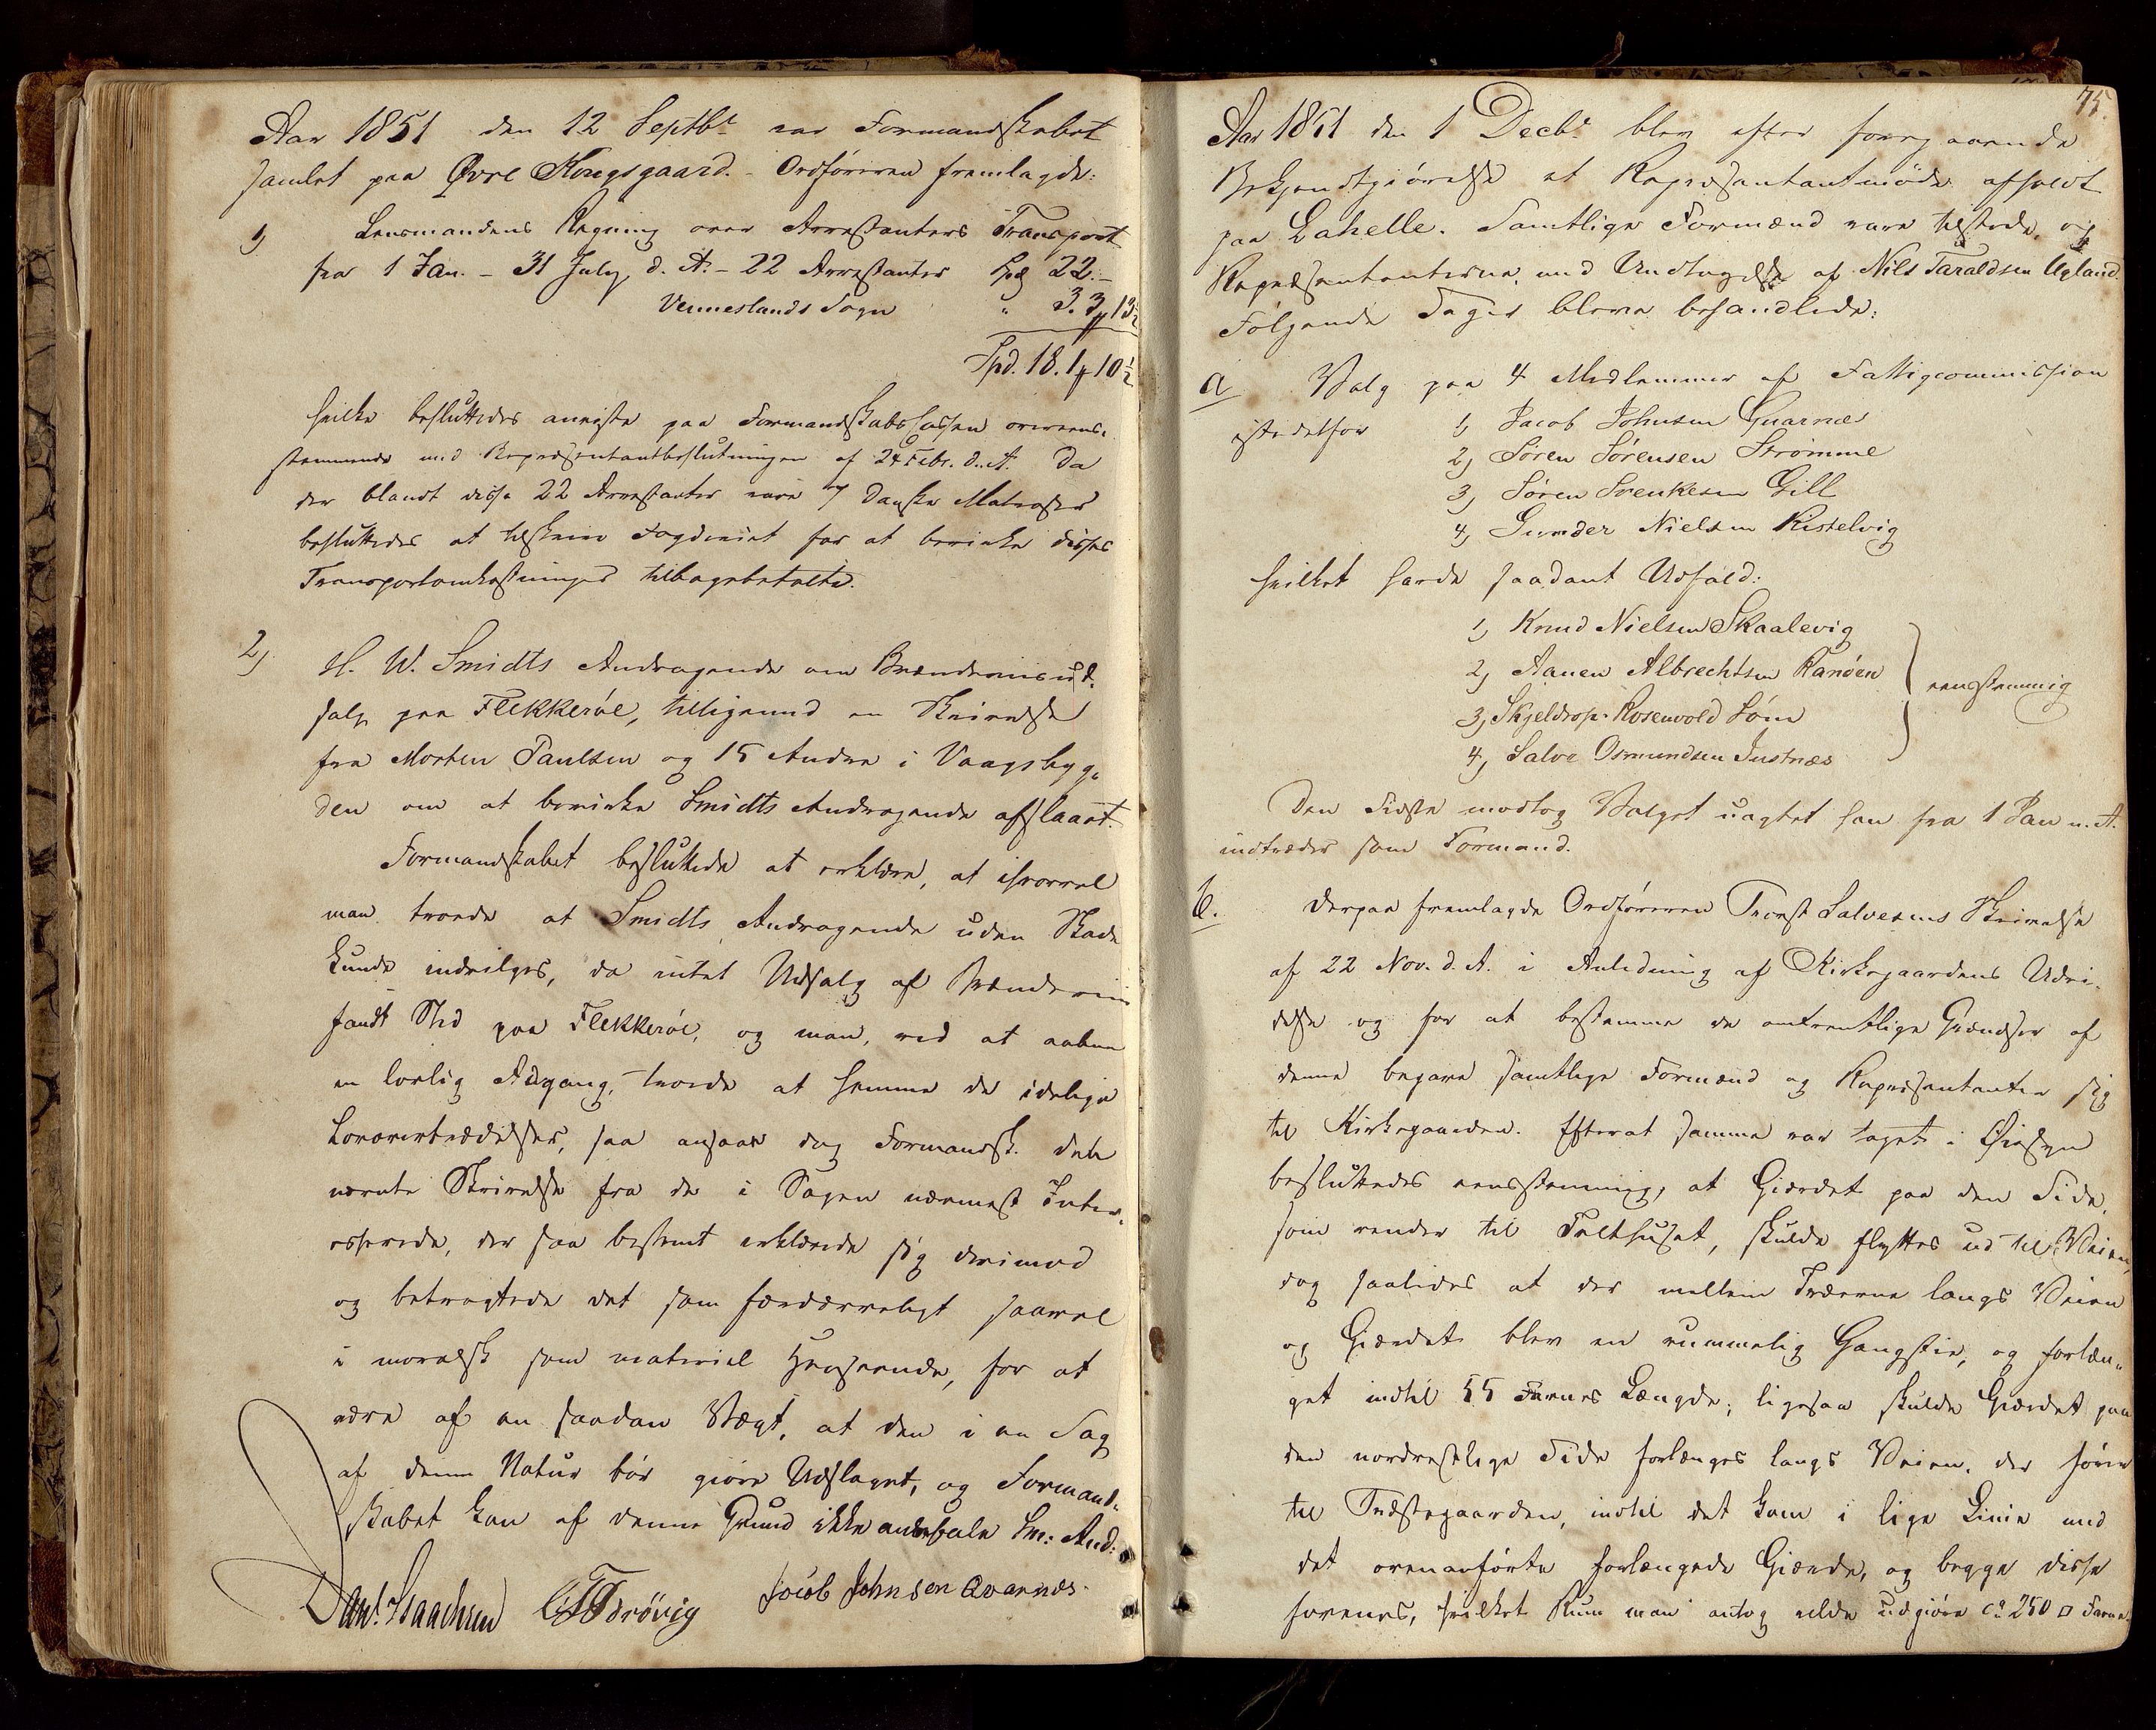 Aar 1851 den 12 Septbr var Formandskabet
samlet paa Øvre Kongsgaard. - Ordføreren fremlagde:
1) Lensmandens Regning over Arrestanters Transport
fra 1 Jan. - 31 July d. A. - 22 Arrestanter Spd 22. -
Venneslands Sogn " 3. 3 ₰ 13½
Spd. 18. 1 ₰ 10½
hvilke besluttedes anviste paa Formandskabscassen overeens-
stemmende med Repræsentantbeslutningen af 24 Febr. d. A. Da
der blandt disse 22 Arrestanter vare 7 danske Matroser
besluttedes at tilskrive Fogderiet for at bevirke disses
Transportomkostninger tilbagebetalte.
2) H. W. Smidts Andragende om Brændeviinsud-
salg paa Flekkerøe, tilligemed en Skrivelse
fra Morten Paulsen og 15 Andre i Vaagsbyg-
den om at bevirke Smidts Andragende afslaaet.
Formandskabet besluttede at erklære, at ihvorvel
man troede at Smidts Andragende uden Skade
kunde indvilges, da intet Udsalg af Brændeviin
fandt Sted paa Flekkerøe, og man, ved at aabne
en lovlig Adgang, troede at hemme de idelige
Lovovertrædelser, saa ansaae dog Formandsk. den
nævnte Skrivelse fra de i Sagen nærmest Inter-
esserede, der saa bestemt erklærede sig derimod
og betragtede det som fordærveligt saavel
i moralsk som materiel Henseende, for at
være af en saadan Vægt, at den i en Sag
af denne Natur bør giøre Udslaget, og Formand-
skabet kan af denne Grund ikke anbefale Sm: And:
Danl. Isaachsen Tdrövig Jacob Johnsen Qvarnæs.
75.
Aar 1851 den 1 Decbr blev efter foregaaende
Bekjendtgiørelse et Repræsentantmøde afholdt
paa Lahelle. Samtlige Formænd vare tilstede, og
Repræsentanterne med Undtagelse af Nils Taraldsen Ugland.
Følgende Sager bleve behandlede:
a Valg paa 4 Medlemmer af Fattigcommission
istedetfor 1) Jacob Johnsen Quarnæs
2) Søren Sørensen Strømme
3) Søren Svenkesen Gill
4) Gunder Nielsen Kistelvig
hvilket havde saadant Udfald:
1) Knud Nielsen Skaalevig
2) Aanen Albrechtsen Randøen
3) Skjeldrop Rosenvold Søm
4) Salve Osmundsen Justnæs
eenstemmig
Den Sidste modtog Valget uagtet han fra 1 Jan n. A.
indtræder som Formand.
b. Derpaa fremlagde Ordføreren Provst Salvesens Skrivelse
af 22 Nov. d. A. i Anledning af Kirkegaardens Udvi-
delse og for at bestemme de omtrentlige Grændser af
denne begave samtlige Formænd og Repræsentanter sig
til Kirkegaarden. Efterat samme var taget i Øiesyn
besluttedes eenstemmig, at Giærdet paa den Side,
som vender til Telthuset, skulde flyttes ud til Veien,
dog saaledes at der mellem Træerne langs Veien
og Giærdet blev en rummelig Gangstie, og forlæn-
get indtil 55 Favnes Længde; ligesaa skulde Giærdet paa
den nordvestlige Side forlænges langs Veien, der fører
til Præstegaarden, indtil det kom i lige Linie med
det ovenanførte forlængede Giærde, og begge disse
forenes, hvilket Rum man antog vilde udgiøre ca 250 □ Favne